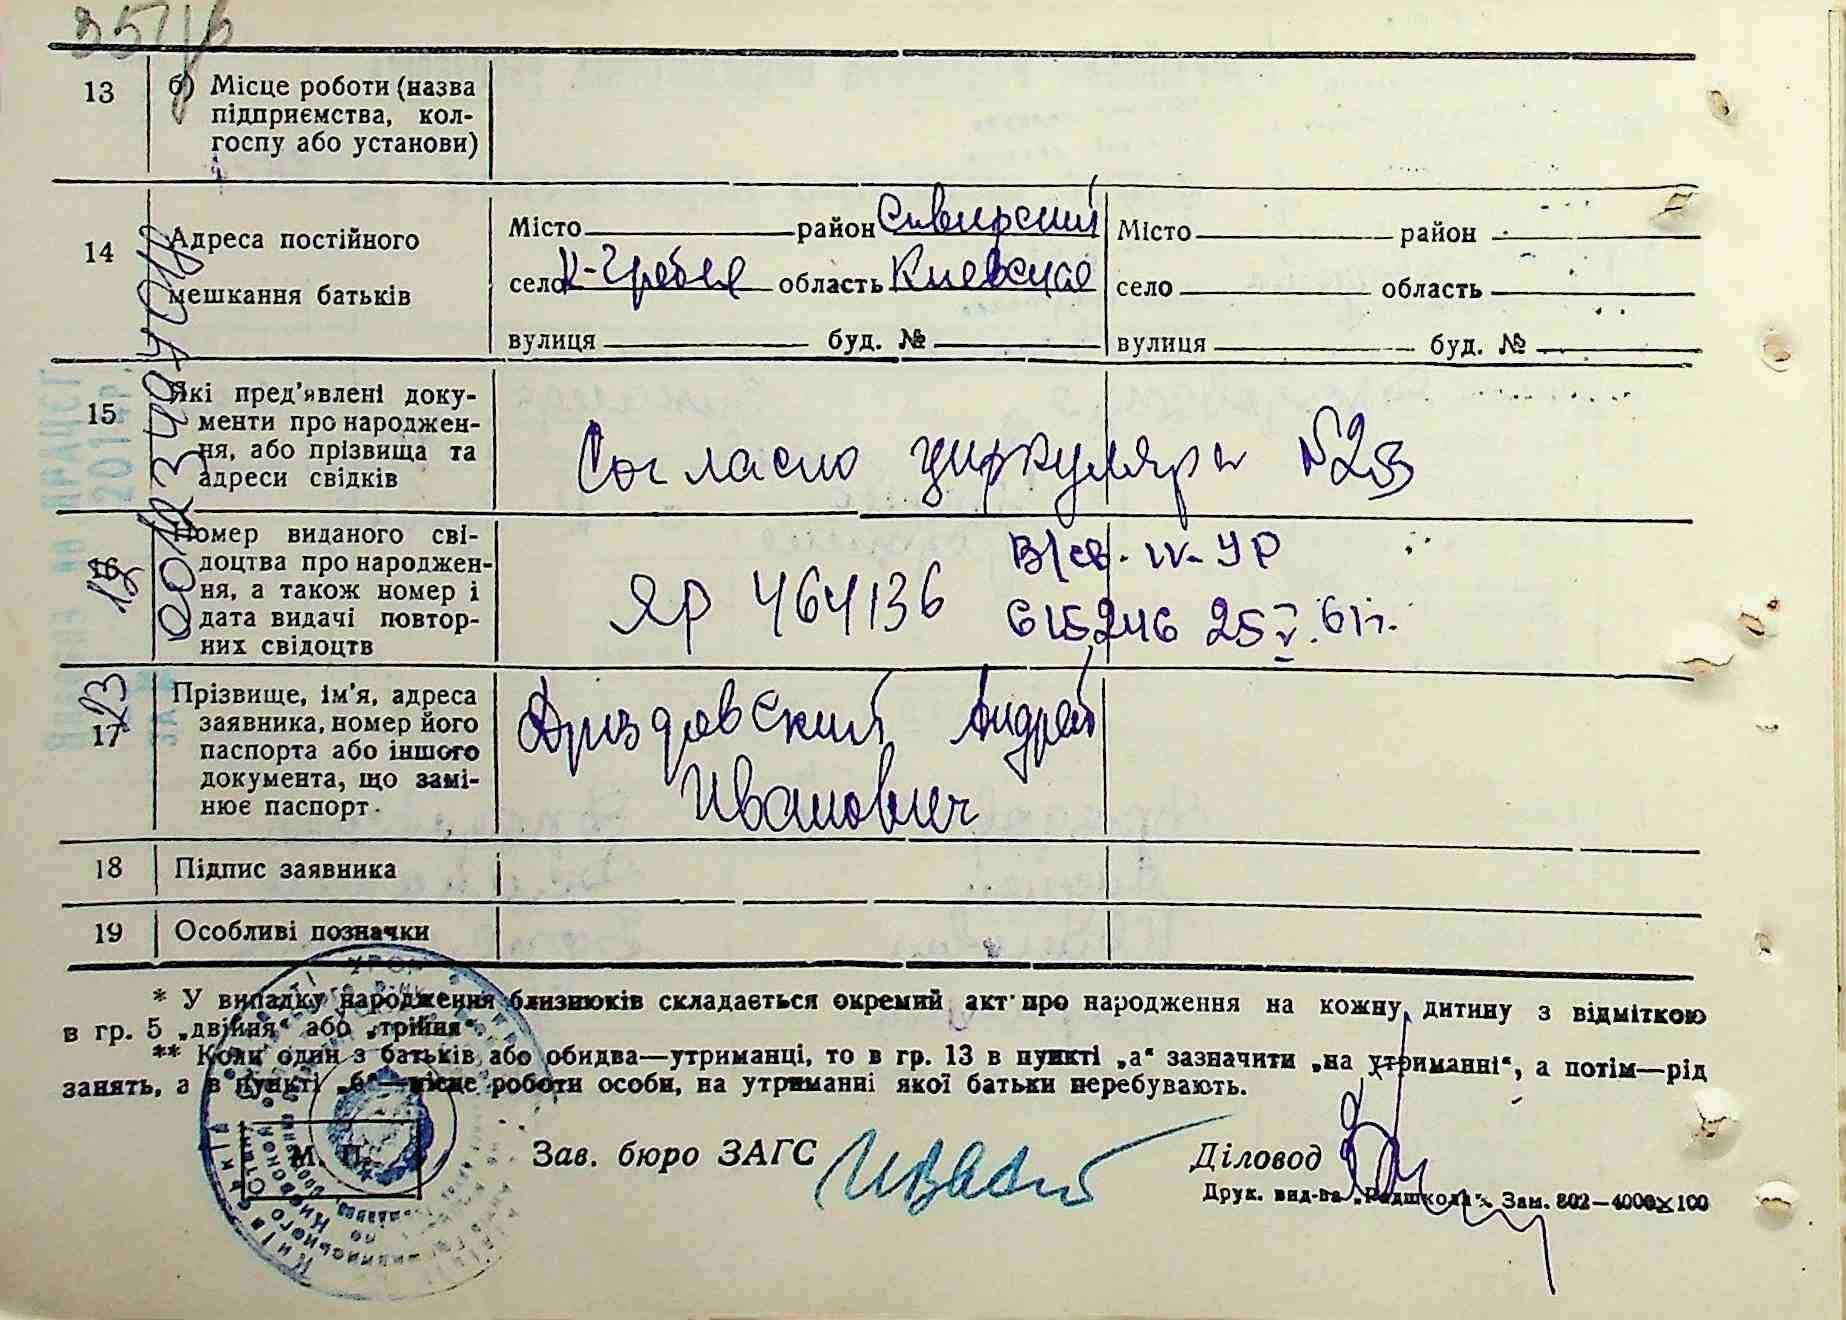 13 б) Місце роботи (назва
підприємства, кол-
госпу або установи)
14 Адреса постійного
мешкання батьків
Місто район Сквирский
село К-Гребля область Киевская
вулиця буд. №
Місто район
село область
вулиця буд. №
15 Які пред'явлені доку-
менти про народжен-
ня, або прізвища та
адреси свідків
Согласно циркуляра №23
16 Номер виданого сві-
доцтва про народжен-
ня, а також номер і
дата видачі повтор-
них свідоцтв
ЯР 464136
В/св. IV-УР
615246 25 V. 61 г.
17 Прізвище, ім'я, адреса
заявника, номер його
паспорта або іншого
документа, що замі-
нює паспорт
Дриздовский Андрей
Иванович
18 Підпис заявника
19 Особливі позначки
* У випадку народження близнюків складається окремий акт про народження на кожну дитину з відміткою
в гр. 5 „двійня“ або „трійня“.
** Коли один з батьків або обидва—утриманці, то в гр. 13 в пункті „а“ зазначити „на утриманні“, а потім—рід
занять, а в пункті „б“—місце роботи особи, на утриманні якої батьки перебувають.
М. П.
Зав. бюро ЗАГС
Діловод
Друк. вид-ва „Радшкола“. Зам. 802—4000×100